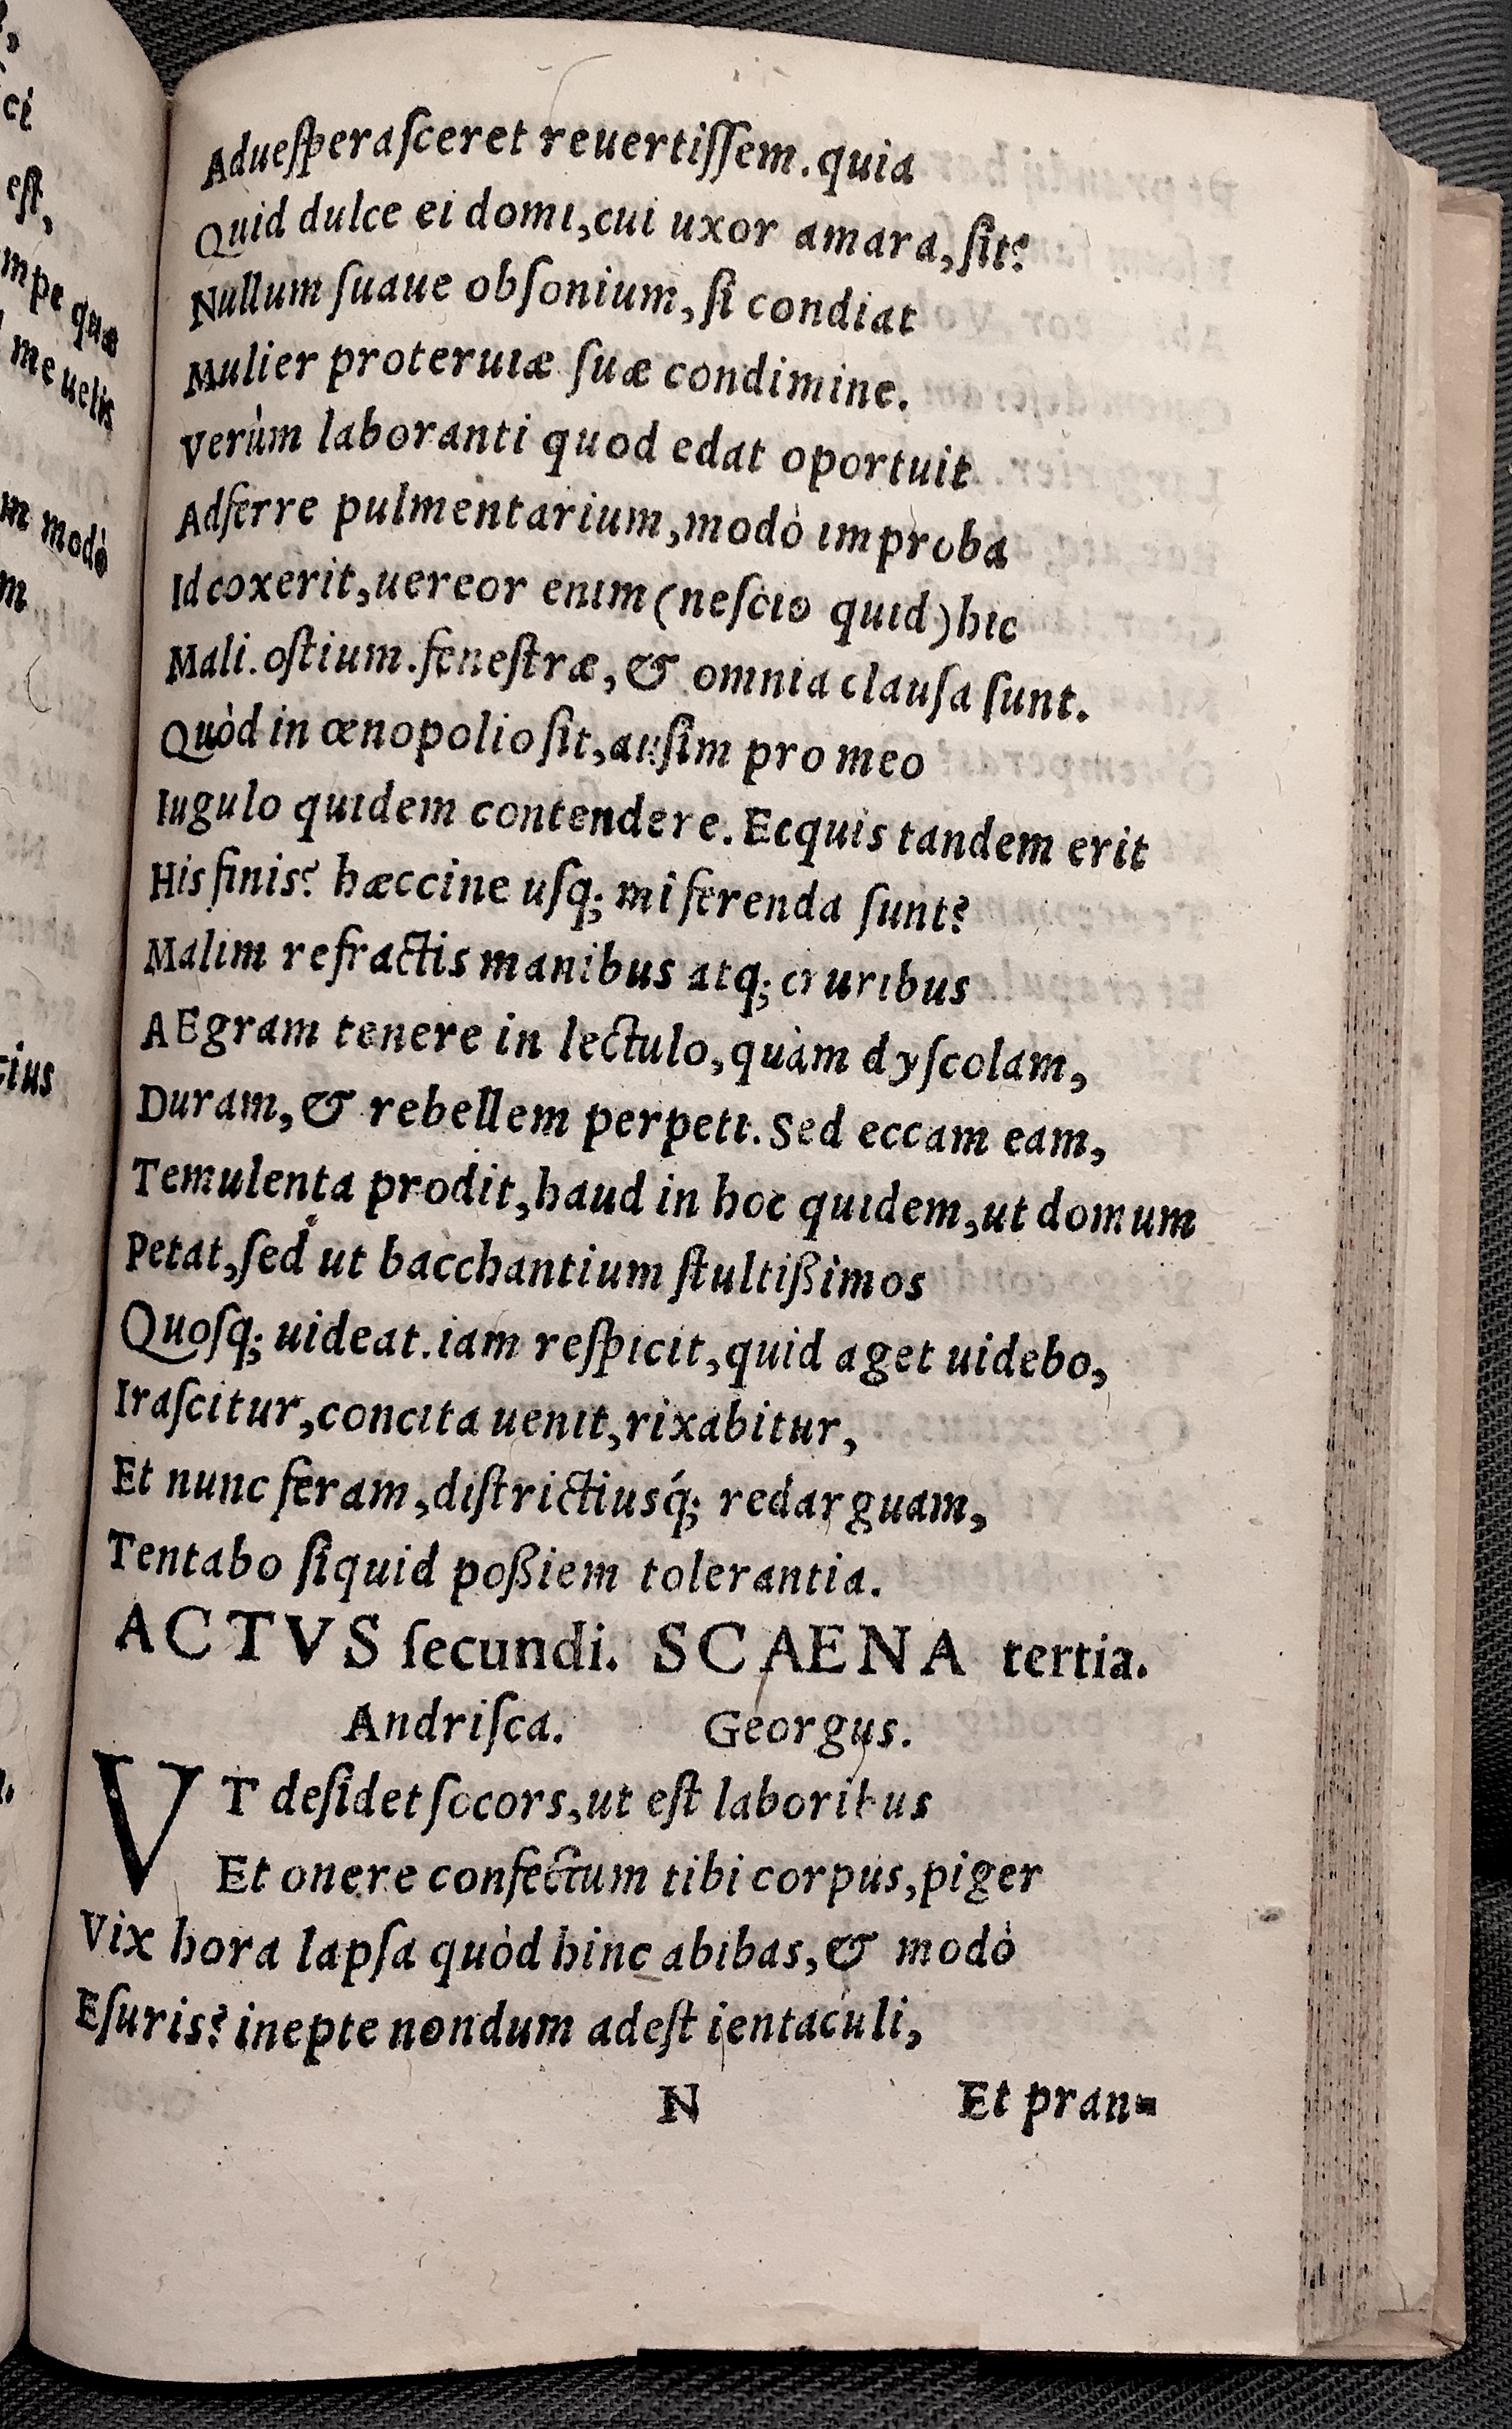 Adueſperaſceret reuertiſſem. quia
Quid dulce ei domi, cui uxor amara, ſit?
Nullum ſuaue obſonium, ſi condiat
Mulier proteruiæ ſuæ condimine.
Verùm laboranti quod edat oportuit
Adferre pulmentarium, modò improba
Id coxerit, uereor enim (neſcio quid) hic
Mali. oſtium. feneſtræ, & omnia clauſa ſunt.
Quòd in œnopolio ſit, auſim pro meo
Iugulo quidem contendere. Ecquis tandem erit
His finis? hæccine uſq; mi ferenda ſunt?
Malim refractis manibus atq; cruribus
AEgram tenere in lectulo, quàm dyſcolam,
Duram, & rebellem perpeti. Sed eccam eam,
Temulenta prodit, haud in hoc quidem, ut domum
Petat, ſed ut bacchantium ſtultißimos
Quoſq; uideat. iam reſpicit, quid aget uidebo,
Iraſcitur, concita uenit, rixabitur,
Et nunc feram, diſtrictiusq́; redarguam,
Tentabo ſiquid poßiem tolerantia.
ACTVS ſecundi. SCAENA tertia.
Andriſca. Georgus.
VT deſidet ſocors, ut eſt laboribus
Et onere confectum tibi corpus, piger
Vix hora lapſa quòd hinc abibas, & modò
Eſuris? inepte nondum adeſt ientaculi,
N Et pran=
ci
eſt,
mpe quæ
me uelis
m modò
m
tius